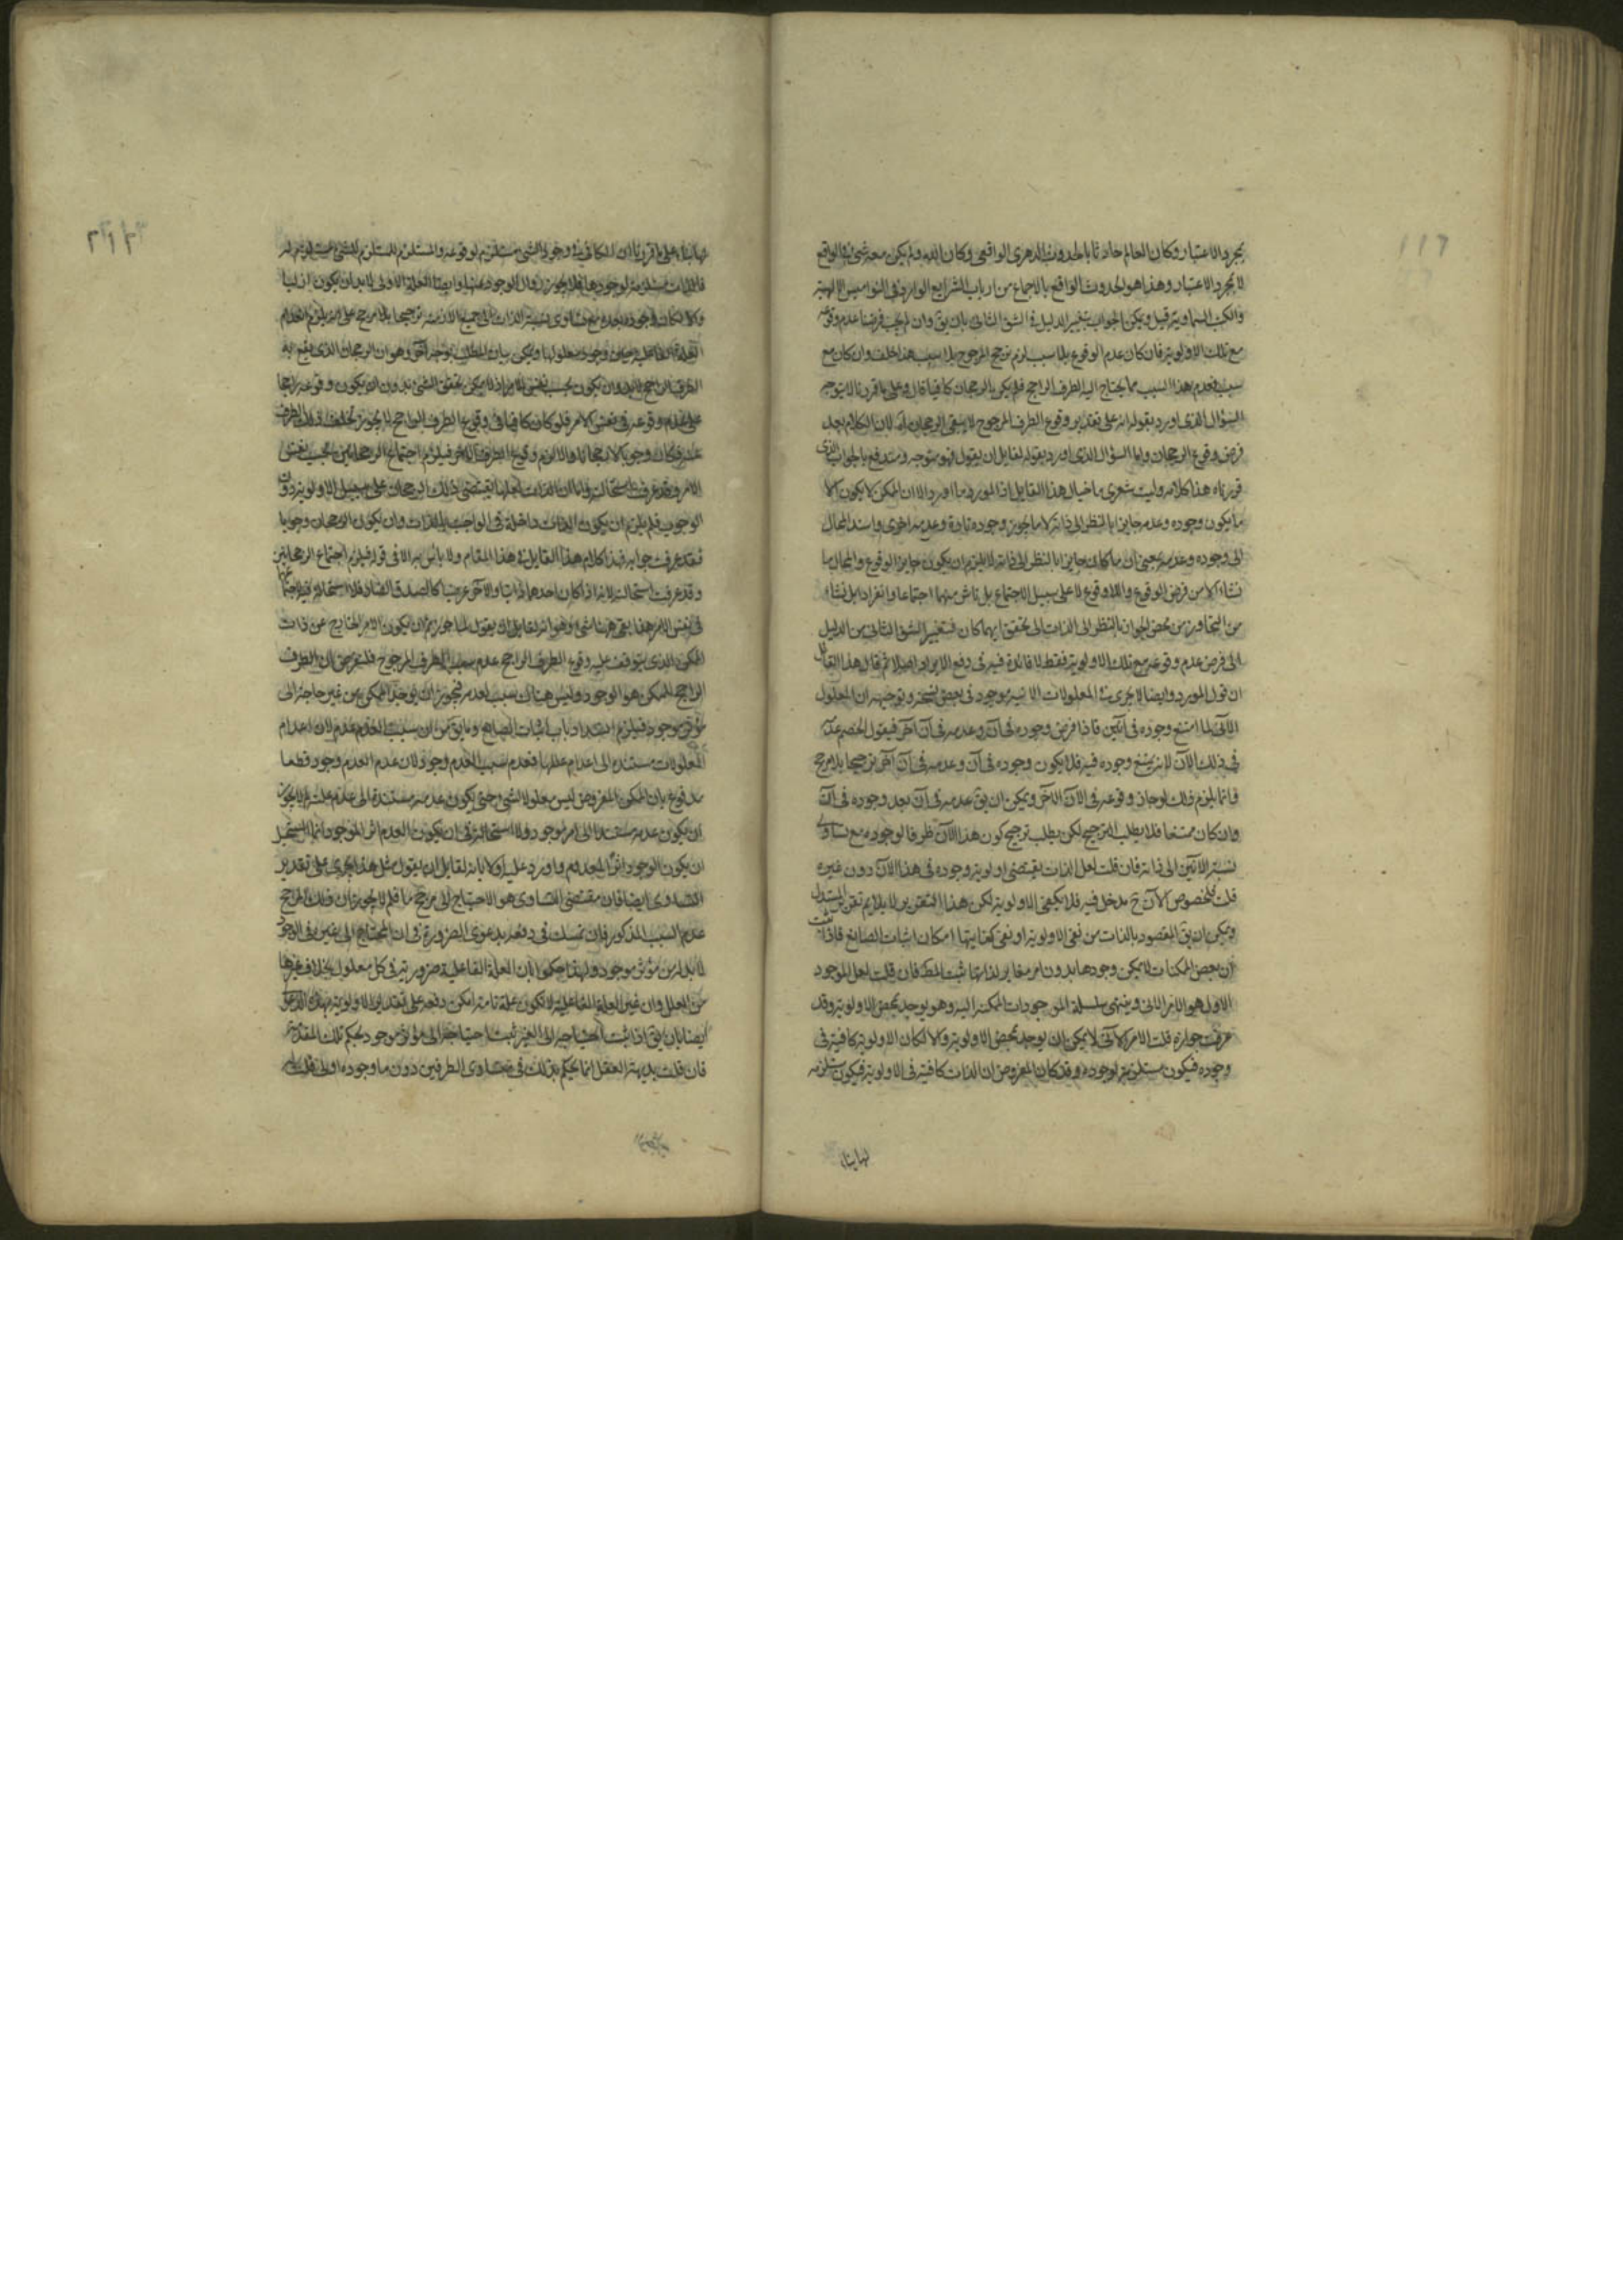 بمجرد الاعتبار وكان العالم حادثا بالحدوث الدهرى الواقعى وكان الله ولم يكن معه شئ فى الواقع
لا بمجرد الاعتبار وهذا هو الحدوث الواقع بالاجماع من ارباب الشرايع الواردة فى النواميس الالهية
والكتب السماوية قيل ويمكن الجواب بتغيير الدليل فى الشق الثانى بان يق وان لم يجب فرضنا عدم وقوعه
مع تلك الاولوية فان كان عدم الوقوع بلا سبب لزم ترجح المرجوح بلا سبب هذا خلف وان كان مع
سبب فعدم هذا السبب مما يحتاج اليه الطرف الراجح فلم يكن الرجحان كافيا قال وعلى ما قررنا لا يتوجه
السؤال الذى اورد بقوله انه على تقدير وقوع الطرف المرجوح لا يبقى الرجحان اه لان الكلام بعد
فرض وقوع الرجحان واما السؤال الذى اورد بقوله لقايل ان يقول فهو متوجه ومندفع بالجواب الذى
قررناه هذا كلامه وليت شعرى ما خيال هذا القايل اذ المورد ما اورد الا ان الممكن لا يكون الا
ما يكون وجوده وعدمه جايزا بالنظر الى ذاته لا ما يجوز وجوده تارة وعدمه اخرى واسند المحال
الى وجوده وعدمه بمعنى ان ما كان جايزا بالنظر الى ذاته لا يلزم ان يكون جايز الوقوع والمحال ما
نشاء الا من فرض الوقوع واللاوقوع لا على سبيل الاجتماع بل ناش منهما اجتماعا وانفرادا بل نشاء
من التجاوز من محض الجواز بالنظر الى الذات الى تحقق ايهما كان فتغيير الشق الثانى من الدليل
الى فرض عدم وقوعه مع تلك الاولوية فقط لا فائدة فيه فى دفع الايراد اصلا ثم قال هذا القائل
ان قول المورد وايضا لا يجرى فى المعلولات الانية موجود فى بعض نسخه وتوجيهه ان المعلول
الآنى لما امتنع وجوده فى آنين فاذا فرض وجوده فى آن وعدمه فى آن آخر فيقول الخصم عدمه
فى ذلك الآن لانه يمتنع وجوده فيه فلا يكون وجوده فى آن وعدمه فى آن آخر ترجيحا بلا مرجح
وانما يلزم ذلك لو جاز وقوعه فى الآن الآخر ويمكن ان يق عدمه فى آن بعد وجوده فى آن
وان كان ممتنعا فلا يطلب الترجيح لكن يطلب ترجيح كون هذا الآن ظرفا لوجوده مع تساوى
نسبة الآنين الى ذاته فان قلت لعل الذات يقتضى اولوية وجوده فى هذا الآن دون غيره
قلت فلخصوص الآن ح مدخل فيه فلا يكفى الاولوية لكن هذا التقرير لا يلايم تقرير المستدل
ويمكن ان يق المقصود بالذات من نفى الاولوية او نفى كفايتها امكان اثبات الصانع فاذا ثبت
ان بعض الممكنات لا يمكن وجودها بدون امر مغاير لذاتها ثبت المط فان قلت لعل الموجود
الاول هو الامر الآنى وينتهى سلسلة الموجودات الممكنة اليه وهو يوجد بمحض الاولوية وقد
عرفت جوازه قلت الامر الآنى لا يمكن ان يوجد بمحض الاولوية والا لكان الاولوية كافية فى
وجوده فيكون مستلزمة لوجوده وقد كان المفروض ان الذات كافية فى الاولوية فيكون مستلزمة
لها بناء
لها بناء على ما قررنا ان الكافى فى وجود الشئ مستلزم لوقوعه والمستلزم للمستلزم للشئ مستلزم له
فالذات مستلزمة لوجودها فلا يجوز زوال الوجود عنها وايضا العلة الاولى لا بد ان يكون ازليا
والا لكان وجوده بعده مع تساوى نسبة الذات الى جميع الازمنة ترجيحا بلا مرجح على انه يلزم انعدام
العلة الفاعلية حين وجود معلولها ويمكن بيان المطلب بوجه آخر وهو ان الرجحان الذى يقع به
الطرف الراجح لا بد وان يكون بحسب نفس الامر اذ لا يمكن تحقق الشئ بدون ان يكون وقوعه راجحا
على عدم وقوعه فى نفس الامر فلو كان كافيا فى وقوع الطرف الراجح لا يجوز تخلف ذلك الطرف
عنه فكان وجوبا لا رجحانا والا لزم وقوع الطرف الآخر فيلزم اجتماع الرجحانين بحسب نفس
الامر وقد عرفت استحالته واما ان الذات لعلها يقتضى ذلك الرجحان على سبيل الاولوية دون
الوجوب فلم يلزم ان يكون الذات داخلة فى الواجب بالذات وان يكون الرجحان وجوبا
فقد عرفت جوابه فهذا كلام هذا القايل فى هذا المقام ولا باس به الا فى قوله فيلزم اجتماع الرجحانين
وقد عرفت استحالته لانه اذا كان احدهما ذاتيا والآخر عرضيا كالصدق الضار فلا استحالة فى اجتماعهما
فى نفس الامر هذا بقى ههنا شئ وهو انه لقايل ان يقول لما جوزتم ان يكون الامر الخارج عن ذات
الممكن الذى يتوقف عليه وقوع الطرف الراجح عدم سبب الطرف المرجوح فلنفرض ان الطرف
الراجح للممكن هو الوجود وليس هناك سبب لعدمه فيجوز ان يوجد الممكن من غير حاجة الى
مؤثر موجود فيلزم انسداد باب اثبات الصانع وما يق من ان سبب العدم عدم لان اعدام
المعلولات مستندة الى اعدام عللها فعدم سبب العدم وجود لان عدم العدم وجود قطعا
مدفوع بان الممكن المفروض ليس معلولا لشئ حتى يكون عدمه مستندة الى عدم علته لم لا يجوز
ان يكون عدمه مستندا الى امر موجود ولا استحالة فى ان يكون العدم اثر الموجود انما المستحيل
ان يكون الوجود اثرا للمعدوم واورد عليه اولا بانه لقايل ان يقول مثل هذا يجرى على تقدير
التساوى ايضا فان مقتضى التساوى هو الاحتياج الى مرجح ما فلم لا يجوز ان ذلك المرجح
عدم السبب المذكور فان تمسك فى دفعه بدعوى الضرورة فى ان المحتاج الى غيره فى الوجود
لا بد له من مؤثر موجود ولهذا حكموا بان العلة الفاعلية ضرورية فى كل معلول بخلاف غيرها
من العلل وان غير العلة الفاعلية لا تكون علة تامة امكن دفعه على تقدير الاولوية بهذه الدعوى
ايضا بان يق اذا ثبت احتياجه الى الغير ثبت احتياجه الى مؤثر موجود بحكم تلك المقدمة
فان قلت بديهة العقل انما يحكم بذلك فى متساوى الطرفين دون ما وجوده اولى قلت